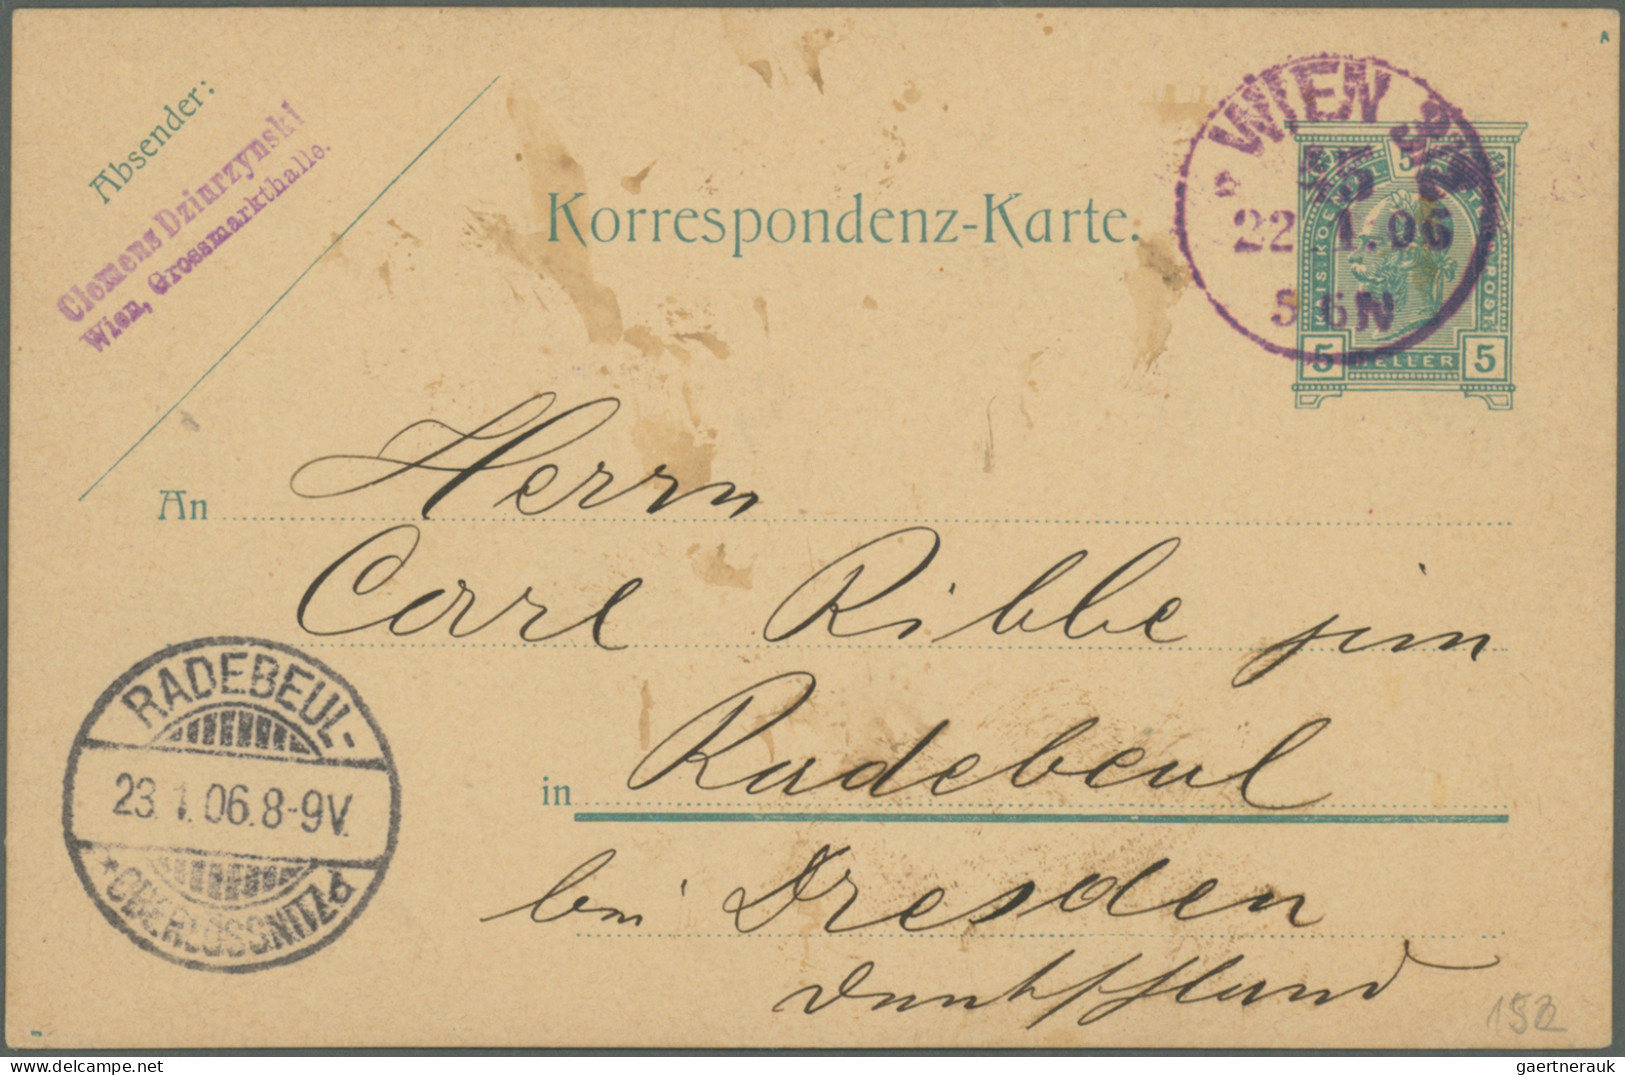 Absender:
Clemens Dziurzynski
Wien, Grossmarkthalle.
Korrespondenz-Karte.
WIEN
22. 1. 06
5 6N
5
KAIS. KOENIGL.
POST.
5 HELLER 5
An Herrn
Carl Ribbe jun
in Radebeul
bei Dresden
Deutschland
RADEBEUL-
23. 1. 06. 8-9V.
*OBERLÖSSNITZ d
152
gaertnerauk